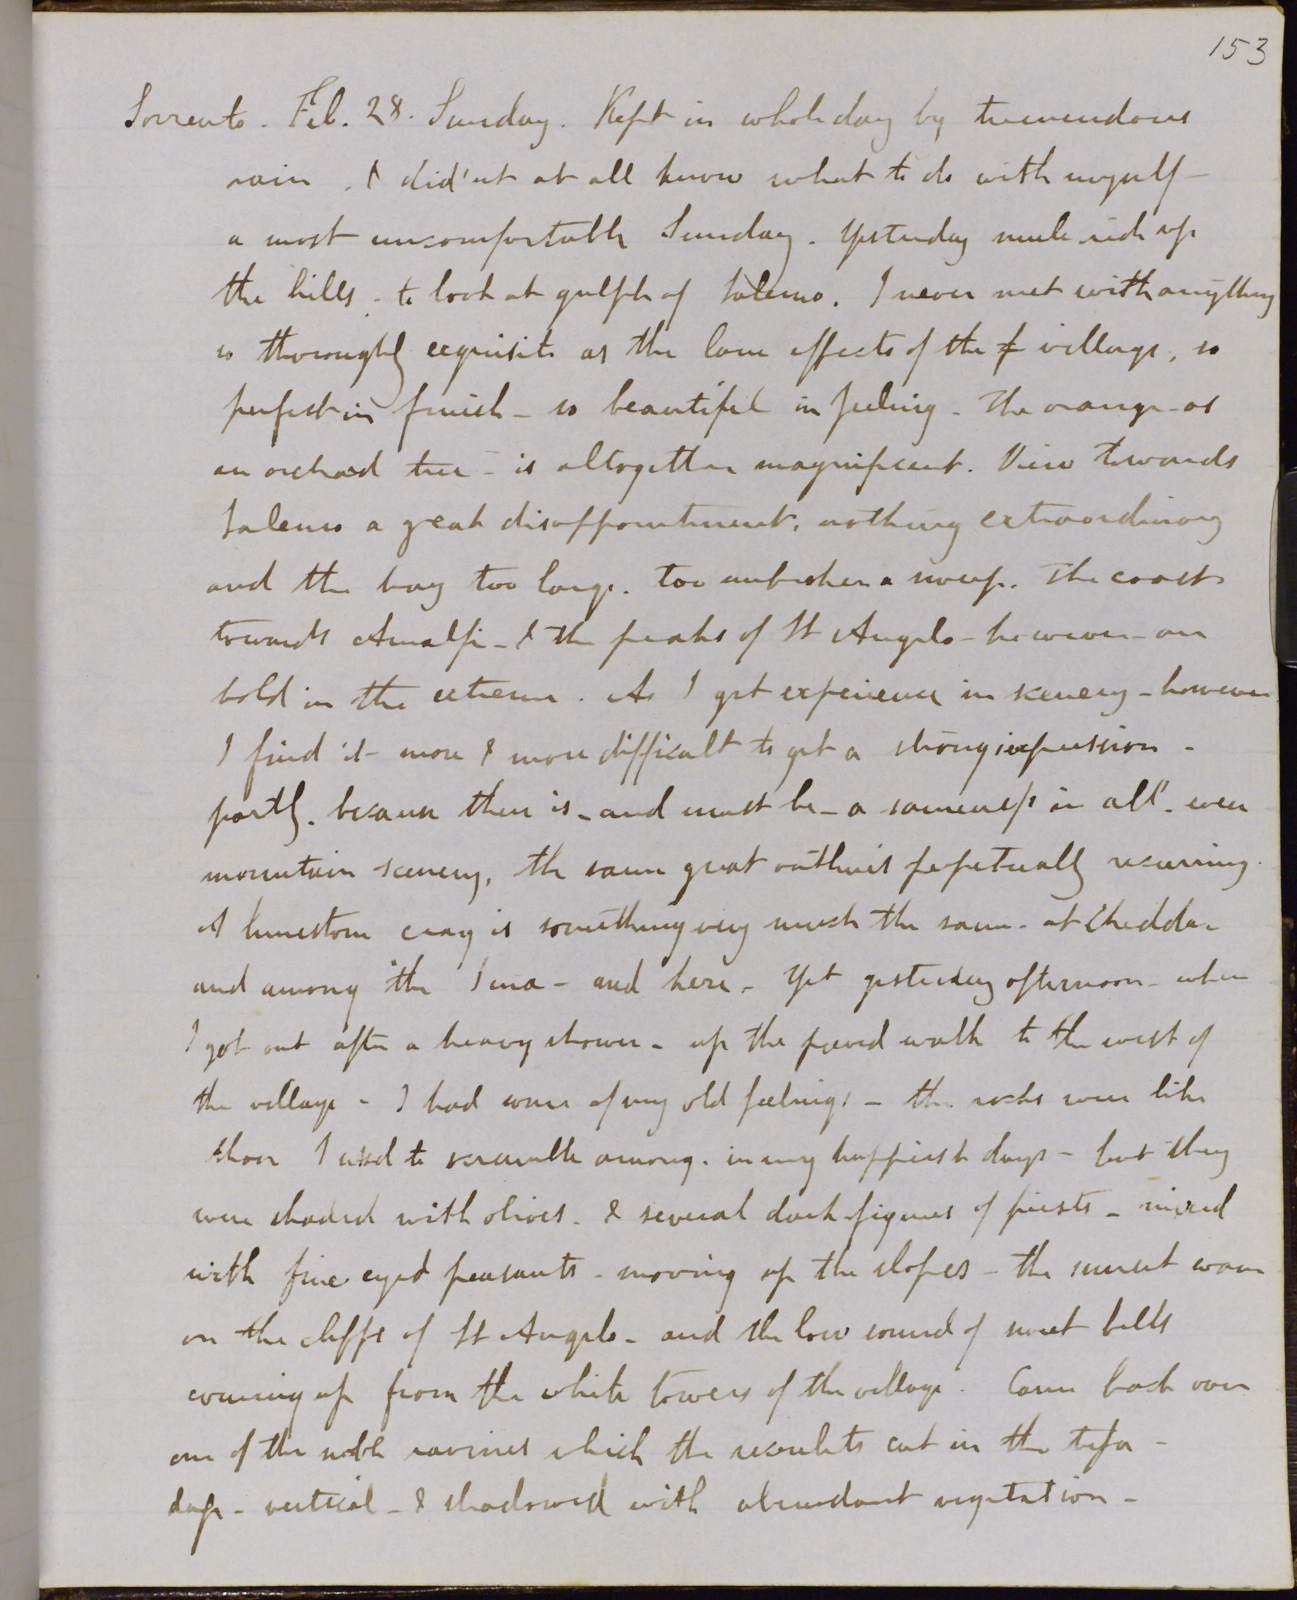 153
Sorrento. Feb. 28. Sunday. Kept in whole day by tremendous
rain. I did'nt at all know what to do with myself -
a most uncomfortable Sunday. Yesterday mule ride up
the hills - to look at gulph of Salerno. I never met with anything
so thoroughly exquisite as the lane effects of the village, so
perfect in finish - so beautiful in feeling - the orange - as
an orchard tree - is altogether magnificent. View towards
Salerno a great disappointment, nothing extraordinary
and the bay too large. too unbroken a sweep. The coast
towards Amalfi - & the peaks of St Angelo - however - are
bold in the extreme. As I get experience in scenery - however
I find it more & more difficult to get a strong impression -
partly. because there is - and must be - a sameness in all - even
mountain scenery, the same great outlines perpetually recurring.
A limestone crag is something very much the same - at Cheddar
and among the Jura - and here. Yet yesterday afternoon - when
I got out after a heavy shower - up the paved walk to the west of
the village - I had some of my old feelings - the rocks were like
those I used to scramble among. in my happiest days - but they
were shaded with olives - & several dark figures of priests - mixed
with fine eyed peasants - moving up the slopes - the sunset warm
on the cliffs of St Angelo - and the low sound of sweet bells
coming up from the white towers of the village. Came back over
one of the noble ravines which the rivulets cut in the tufa -
deep - vertical - & shadowed with abundant vegetation -